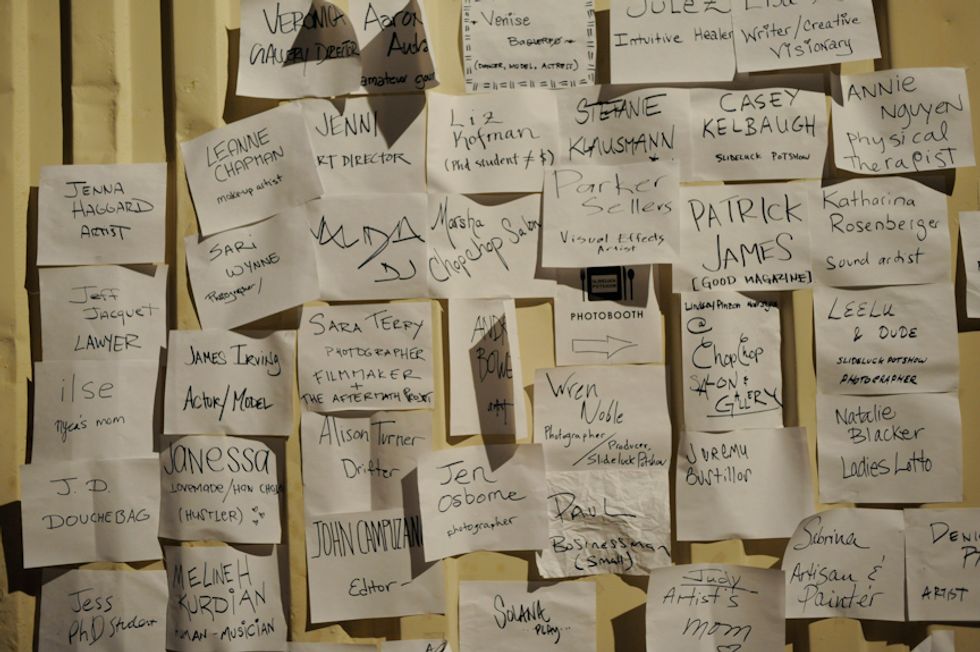 VERONICA
GALLERY DIRECTOR
Aaron
Audra
amateur
Venise
(DANCER, MODEL, ACTRESS)
JULEZ
Intuitive Healer
Writer/Creative
Visionary
LEANNE
CHAPMAN
makeup artist
JENNI
RT DIRECTOR
Liz
Kofman
(Phd student ≠ $)
STEFANIE
KLAUSMANN
CASEY
KELBAUGH
SLIDELUCK POTSHOW
ANNIE
NGUYEN
Physical
Therapist
JENNA
HAGGARD
ARTIST
SARI
WYNNE
Photographer/
DJ
Marsha
ChopChop Salon
Parker
Sellers
Visual Effects
Artist
PATRICK
JAMES
[GOOD MAGAZINE]
Katharina
Rosenberger
Sound artist
Jeff
Jacquet
LAWYER
James Irving
Actor/Model
SARA TERRY
PHOTOGRAPHER
FILMMAKER
+
THE AFTERMATH PROJECT
ANDR
BOWE
SLIDELUCK
POTSHOW
PHOTOBOOTH
Lindsey Pinzon
@
ChopChop
SALON &
GALLERY
LEELU
& DUDE
SLIDELUCK POTSHOW
PHOTOGRAPHER
ilse
nyca's mom
Janessa
(HUSTLER)
Alison Turner
Drifter
Wren
Noble
Photographer/Producer,
/Slideluck Potshow
Jeremy
Bustillor
Natalie
Blacker
Ladies Lotto
J.D.
DOUCHEBAG
Jen
Osborne
photographer
PAUL
Businessman
(small)
JOHN CAMPUZAN
Editor-
Jess
PhD student
MELINEH
KURDIAN
HUMAN-MUSICIAN
SOLANA
..PLAY...
Judy
Artist's
mom
Sabrina
Artisan &
Painter
DENI
ARTIST